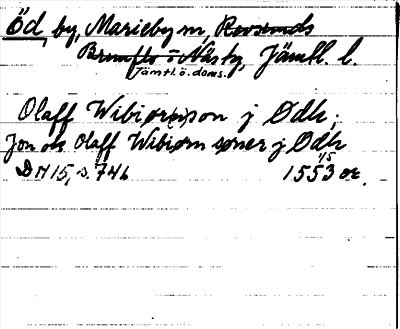 Öd, by, Marieby sn, Revsunds
Brunflo o Näsby, Jämtl. l.
Jämtl. ö. doms.
Olaff Wibiørnson j Ødh,
Jon ok Olaff Wibiørn søner j Ødh
DN 15, s. 746 1553 1/5 or.